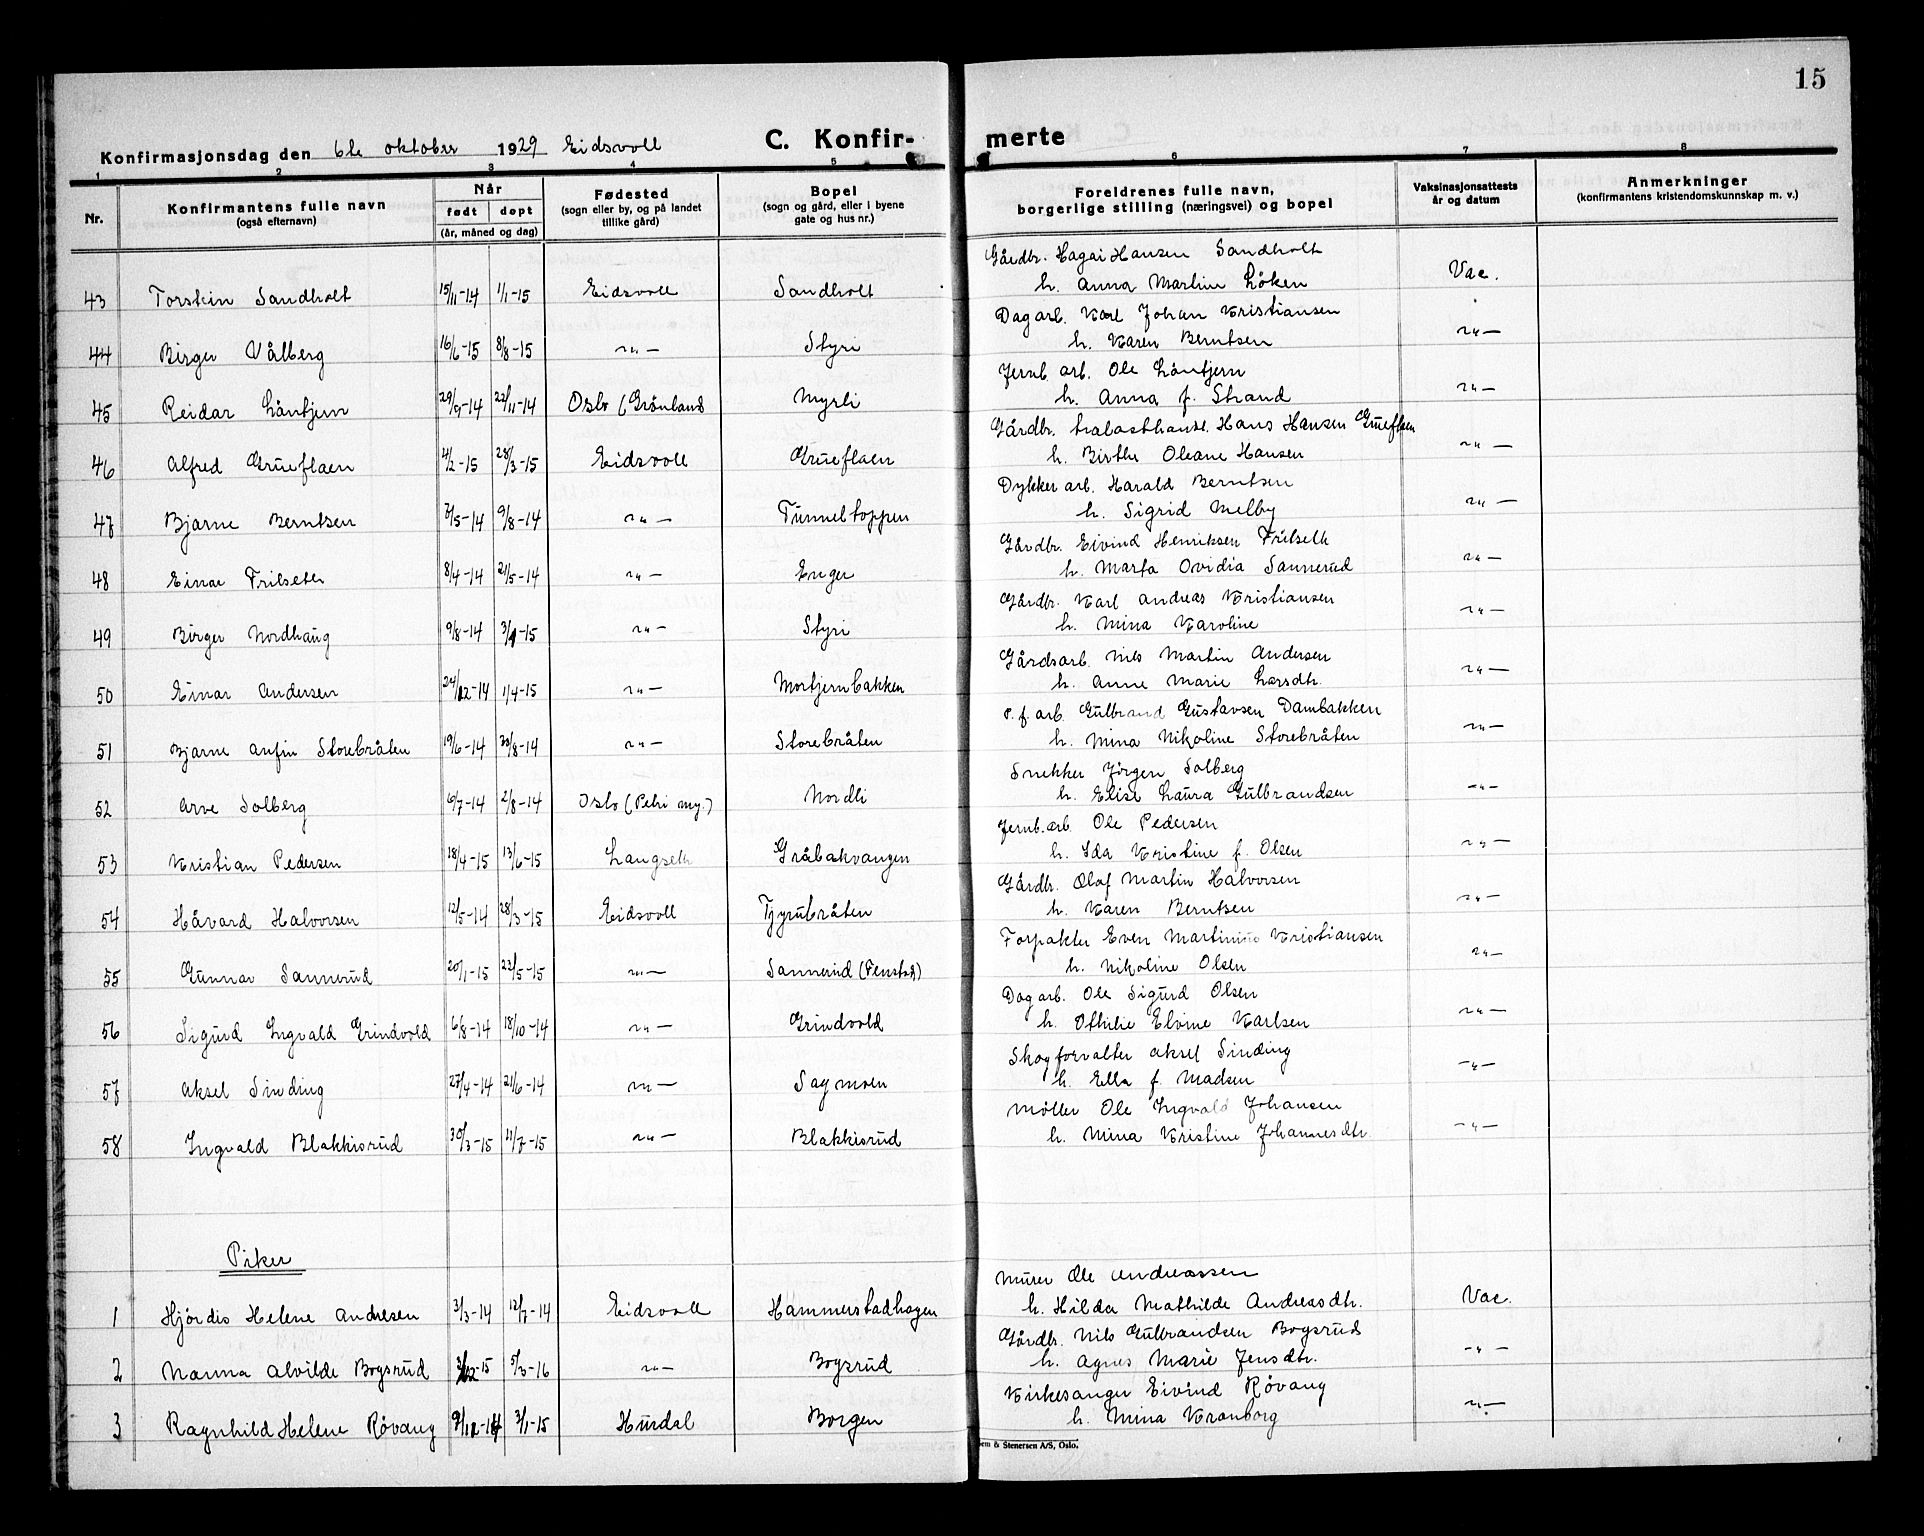 15
Konfirmasjonsdag den 6te oktober 1929 Eidsvoll C. Konfir- merte
1 2 3 4 5 6 7 8
Nr. Konfirmantens fulle navn (også efternavn) Når født døpt (år, måned og dag) Fødested (sogn eller by, og på landet tillike gård) Bopel (sogn og gård, eller i byene gate og hus nr.) Foreldrenes fulle navn, borgerlige stilling (næringsvei) og bopel Vaksinasjonsattests år og datum Anmerkninger (konfirmantens kristendomskunnskap m. v.)
Gårdbr. Hagai Hansen Sandholt
43 Torstein Sandholt 15/11-14 1/1-15 Eidsvoll Sandholt h. Anna Martine Løken Vac.
Dagarb. Karl Johan Kristiansen
44 Birger Vålberg 16/6-15 8/8-15 -"- Styri h. Karen Berntsen -"-
Jernb. arb. Ole Løntjern
45 Reidar Løntjern 29/9-14 22/11-14 Oslo (Grønland Myrli h. Anna f. Strand -"-
Gårdbr. trelasthandl. Hans Hansen Grueflaen
46 Alfred Grueflaen 4/2-15 28/3-15 Eidsvoll Grueflaen h. Birthe Oleane Hansen -"-
Dykker arb. Harald Berntsen
47 Bjarne Berntsen 7/5-14 9/8-14 -"- Tunneltoppen h. Sigrid Melby -"-
Gårdbr. Eivind Henriksen Trilseth
48 Einar Trilseth 8/4-14 21/5-14 -"- Enger h. Marta Ovidia Sannerud -"-
Gårdbr. Karl Andreas Kristiansen
49 Birger Nordhaug 9/8-14 3/1-15 -"- Styri h. Mina Karoline -"-
Gårdsarb. Nils Martin Andersen
50 Einar Andersen 24/12-14 1/4-15 -"- Mortjernbakken h. Anne Marie Larsdtr. -"-
P. f. arb. Gulbrand Gustavsen Dambakken
51 Bjarne Anfin Storebråten 19/6-14 23/8-14 -"- Storebråten h. Mina Nikoline Storebråten -"-
Snekker Jørgen Solberg
52 Arve Solberg 6/7-14 2/8-14 Oslo (Petri my.) Nordli h. Elise Laura Gulbrandsen -"-
Jernb.arb. Ole Pedersen
53 Kristian Pedersen 18/4-15 13/6-15 Langseth Gråbakvangen h. Ida Kristine f. Olsen -"-
Gårdbr. Olaf Martin Halvorsen
54 Håvard Halvorsen 12/5-14 28/3-15 Eidsvoll Tyrubråten h. Karen Berntsen -"-
Forpakter Even Martinius Kristiansen
55 Gunnar Sannerud 20/1-15 23/5-15 -"- Sannerud (Fenstad) h. Nikoline Olsen -"-
Dagarb. Ole Sigurd Olsen
56 Sigurd Ingvald Grindvold 6/8-14 18/10-14 -"- Grindvold h. Othilie Elvine Karlsen -"-
Skogforvalter Aksel Sinding
57 Aksel Sinding 27/4-14 21/6-14 -"- Sagmoen h. Ella f. Madsen -"-
Møller Ole Ingvald Johansen
58 Ingvald Blakkisrud 30/3-15 11/7-15 -"- Blakkisrud h. Mina Kristine Johannesdtr. -"-
Piker
Murer Ole Andreassen
1 Hjørdis Helene Andresen 3/3-14 12/7-14 Eidsvoll Hammerstadhagen h. Hilda Mathilde Andreasdtr. Vac.
Gårdbr. Nils Gulbrandsen Bogsrud
2 Nanna Alvilde Bogsrud 3/12-15 5/3-16 -"- Bogsrud h. Agnes Marie Jensdtr. -"-
Kirkesanger Eivind Røvang
3 Ragnhild Helene Røvang 9/12-14 3/1-15 Hurdal Borgen h. Mina Kranborg -"-
& Stenersen A/S, Oslo.